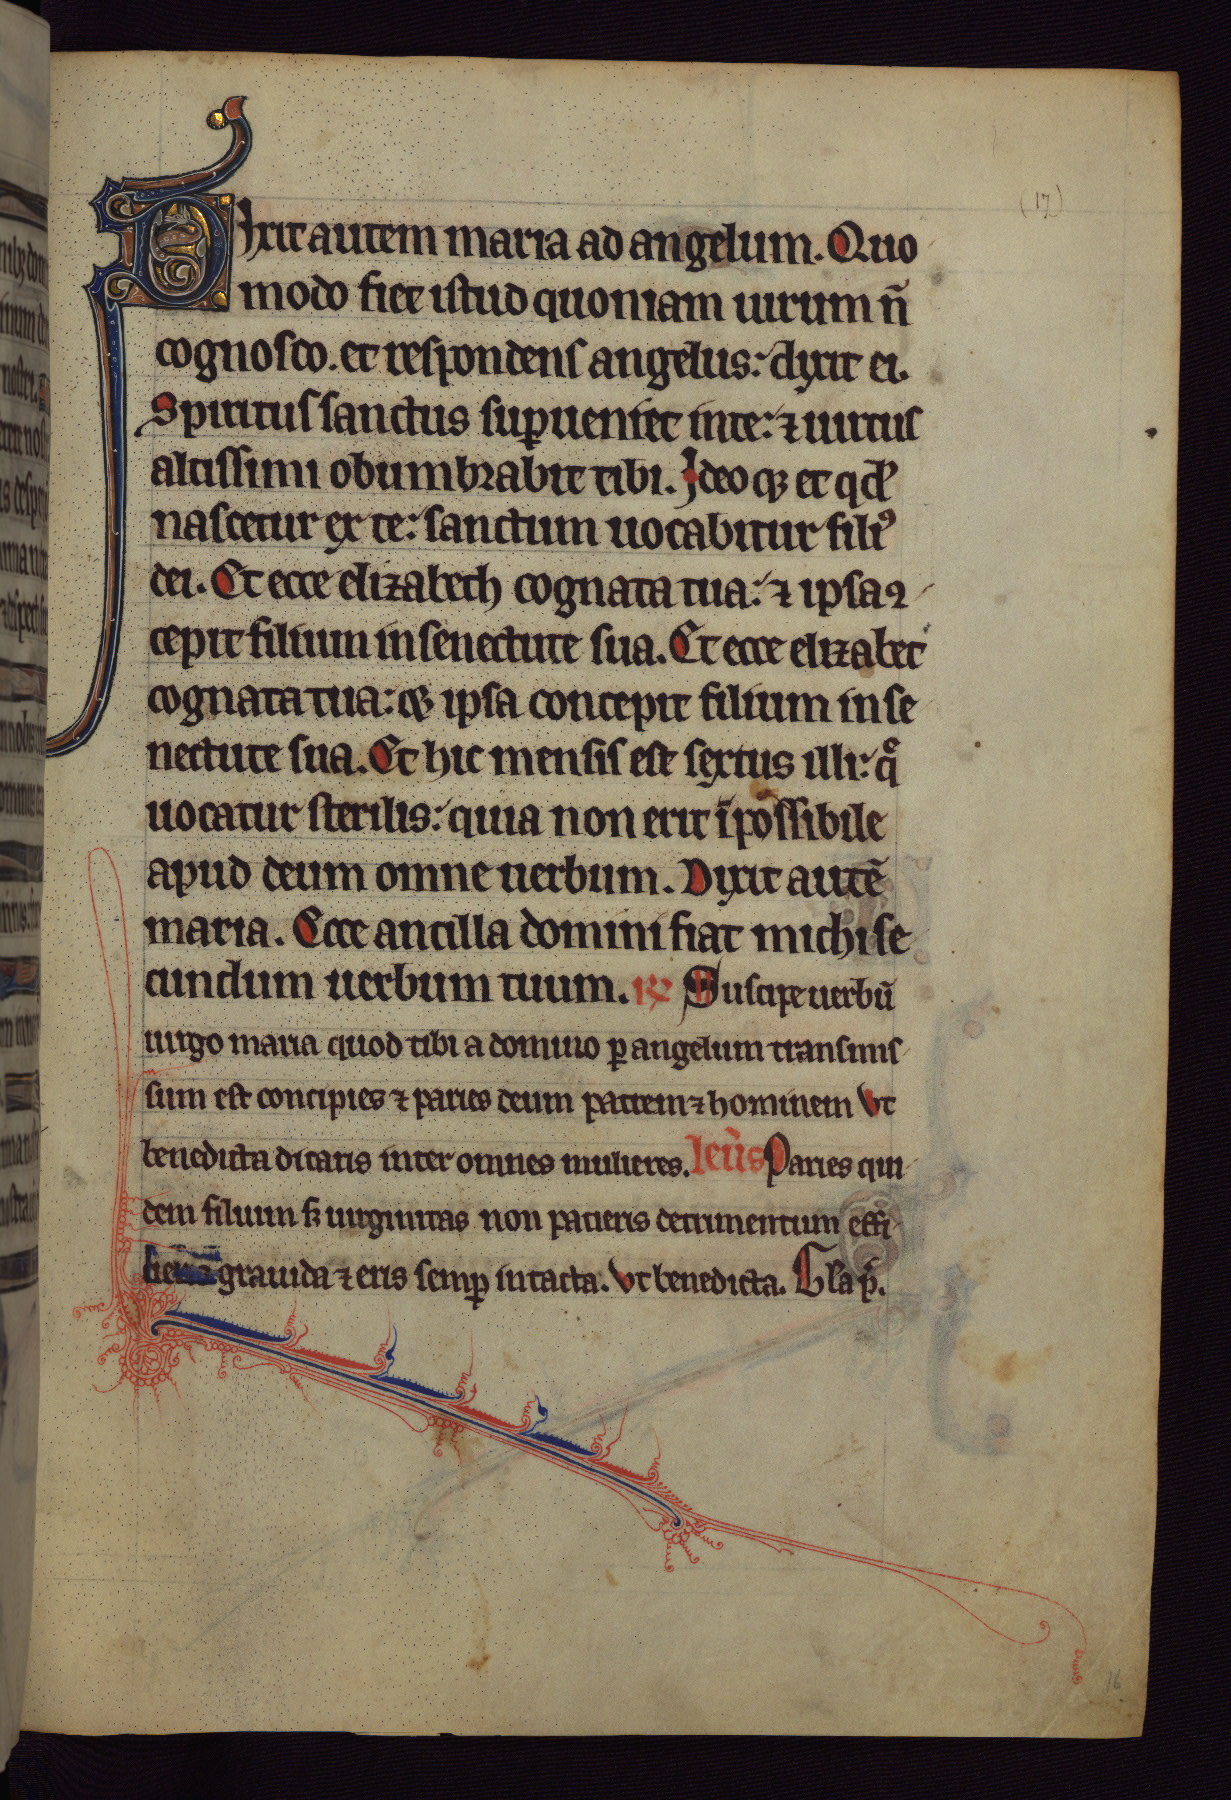 (17)
Dixit autem maria ad angelum. Quo
modo fiet istud quoniam uirum n̄
cognosco. et respondens angelus: dixit ei.
Spiritus sanctus sup̱ueniet in te: ⁊ uirtus
altissimi obumbrabit tibi. Ideoqꝫ et qd̓
nascetur ex te: sanctum uocabitur filiꝰ
dei. Et ecce elizabeth cognata tua: ⁊ ipsa ꝯ
cepit filium in senectute sua. Et ecce elizabet
cognata tua: qꝫ ipsa concepit filium in se
nectute sua. Et hic mensis est sextus illi: q̄
uocatur sterilis: quia non erit īpossibile
apud deum omne uerbum. Dixit autē
maria. Ecce ancilla domini fiat michi se
cundum uerbum tuum. ℟ Suscipe uerbū
uirgo maria quod tibi a domino ꝑ angelum transmis
sum est concipies ⁊ paries deum patrem ⁊ hominem Vt
benedicta dicaris inter omnes mulieres. Paries qui
dem filium sꝫ uirginitas non patieris detrimentum effi
grauida ⁊ eris semꝑ intacta. Vt benedicta. Gl̄a p̄.
16